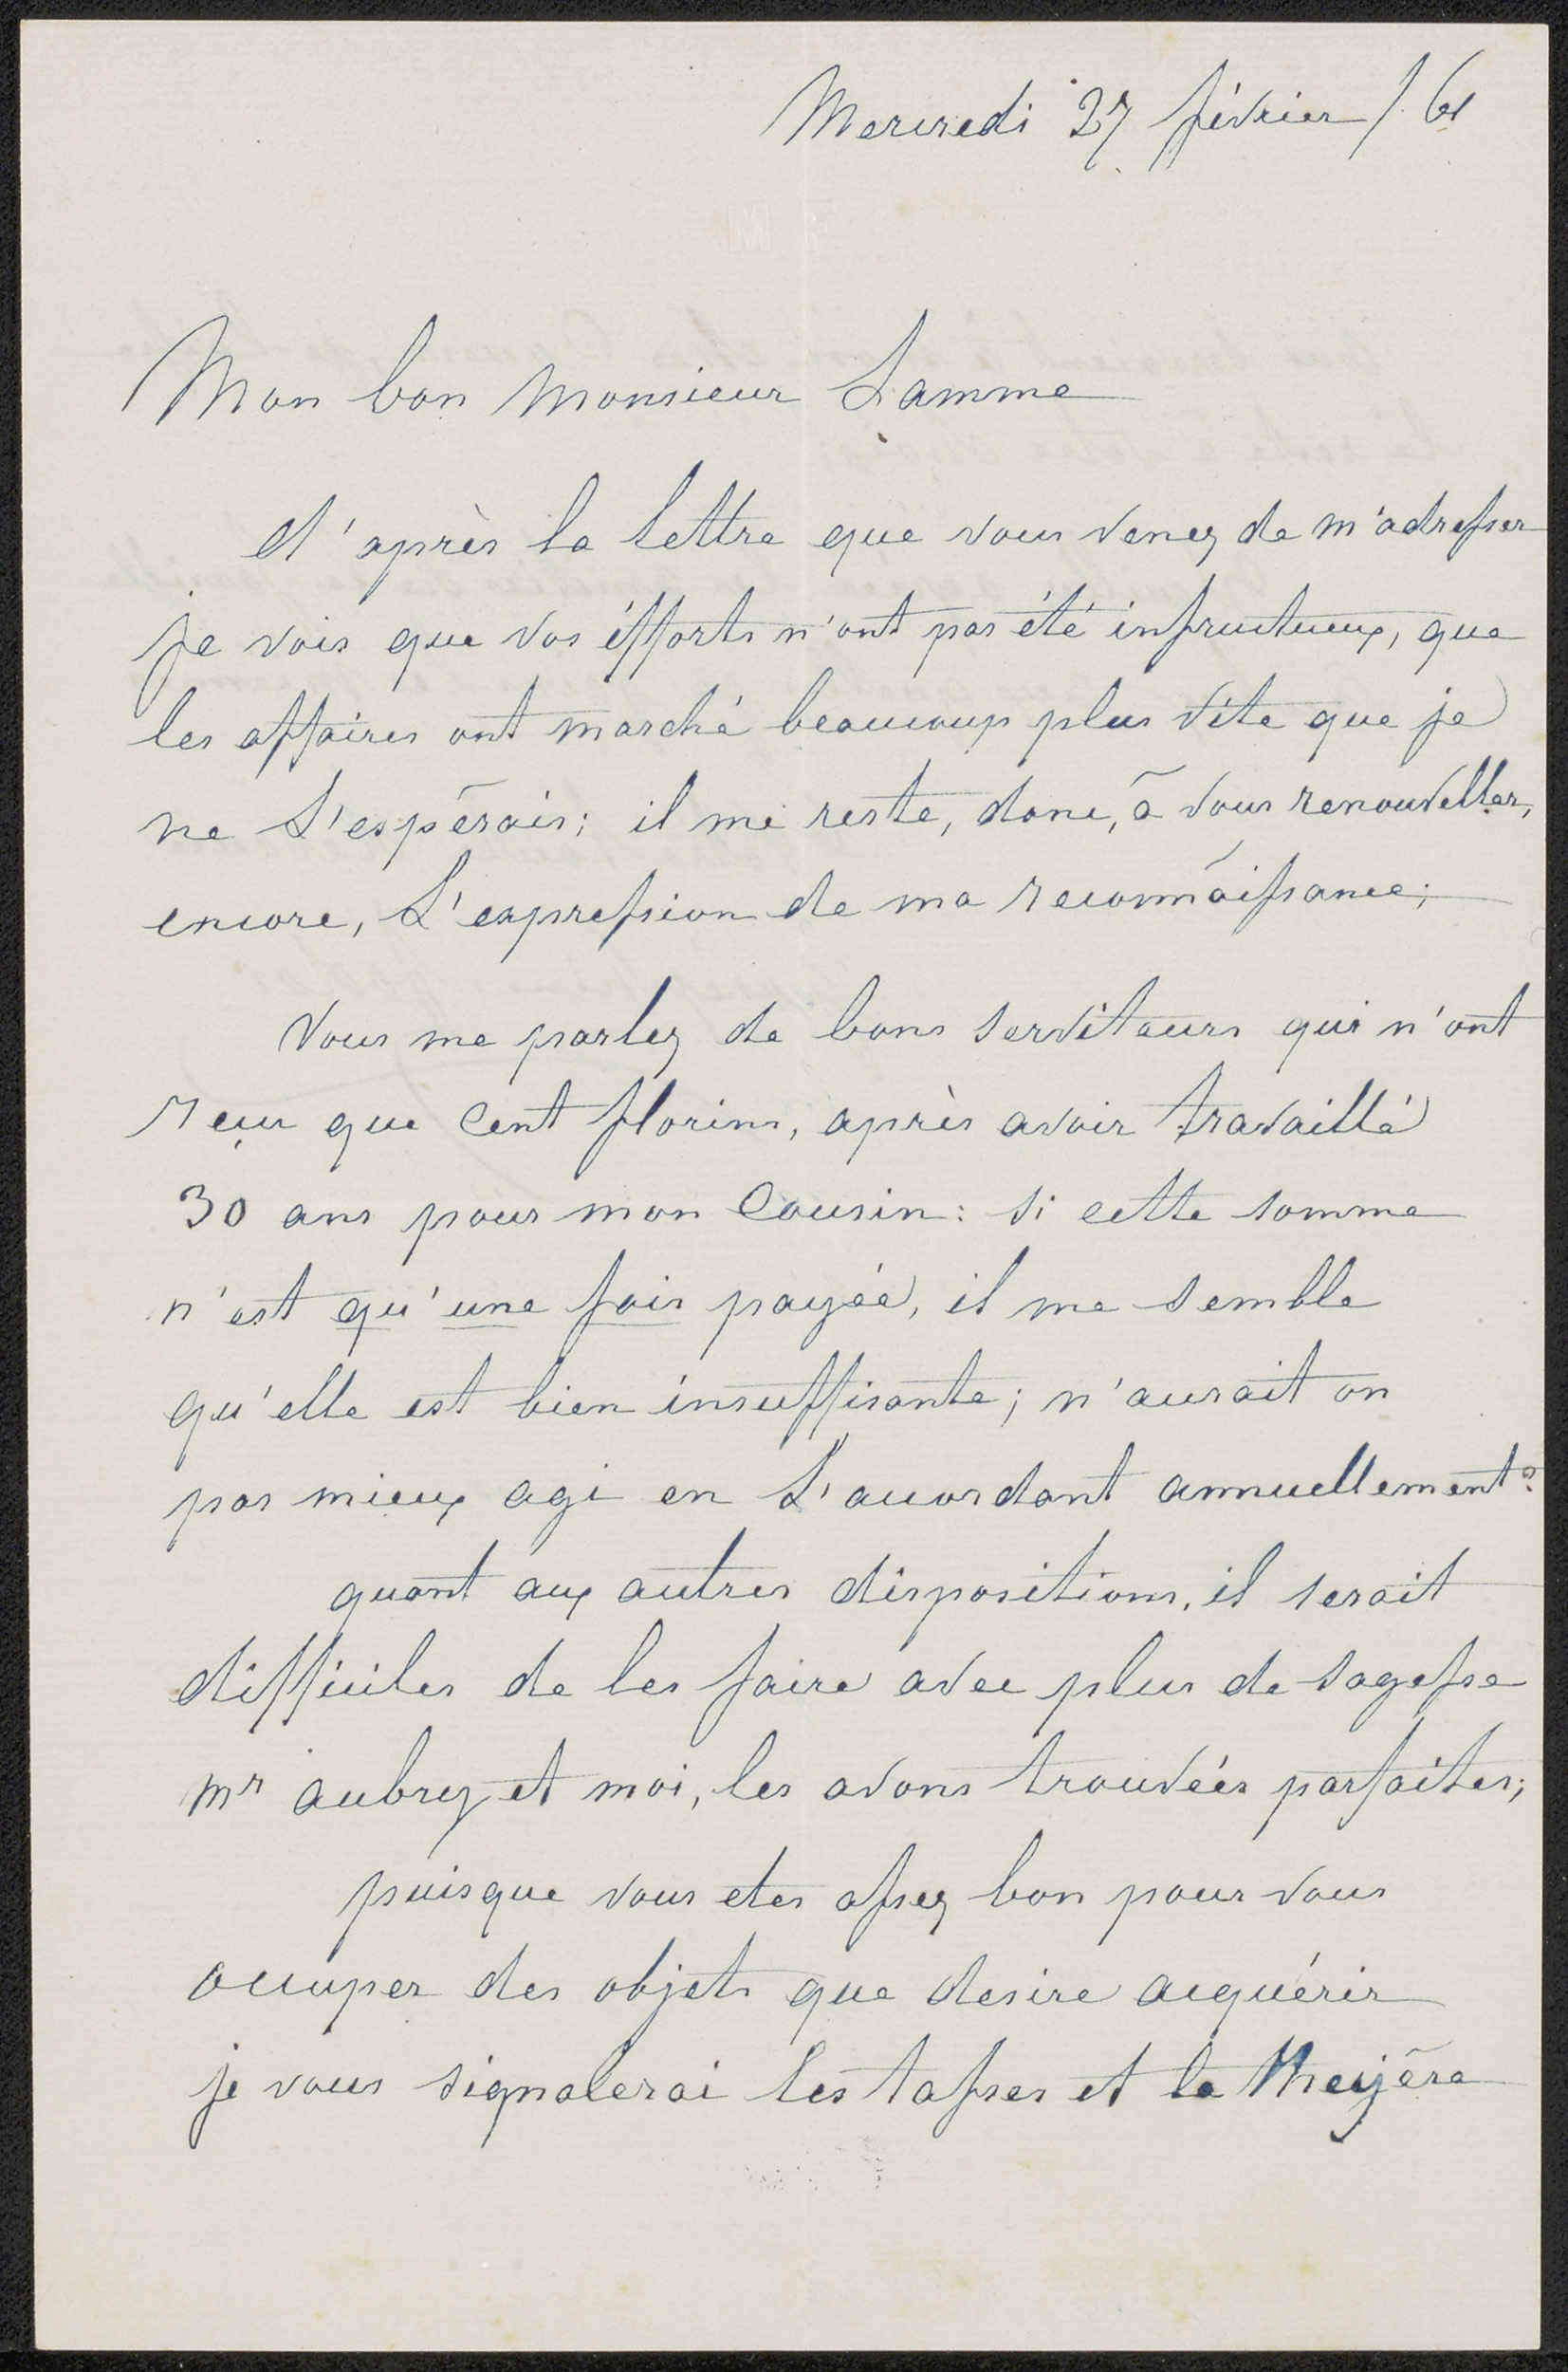 Mercredi 27 février / 61
M F
Mon bon Monsieur Lamme
d'après la lettre que vous venez de m'adresser
je vois que vos éfforts n'ont pas été infructueux, que
les affaires ont marché beaucoup plus vîte que je
ne L'espérais; il me reste, donc, à vous renouveller,
encore, L'expression de ma reconnaissance;
Vous me parlez de bons serviteurs qui n'ont
reçu que Cent florins, après avoir travaillé
30 ans pour mon Cousin: si cette somme
n'est qu'une fois payée, il me semble
qu'elle est bien insuffisante; n'aurait on
pas mieux agi en L'accordant annuellement?
quant aux autres dispositions, il serait
difficiles de les faire avec plus de sagesse
Mr aubry et moi, les avons trouvées parfaites;
puisque vous etes assez bon pour vous
occuper des objets que desire acquérir
je vous signalerai les tasses et la theyére